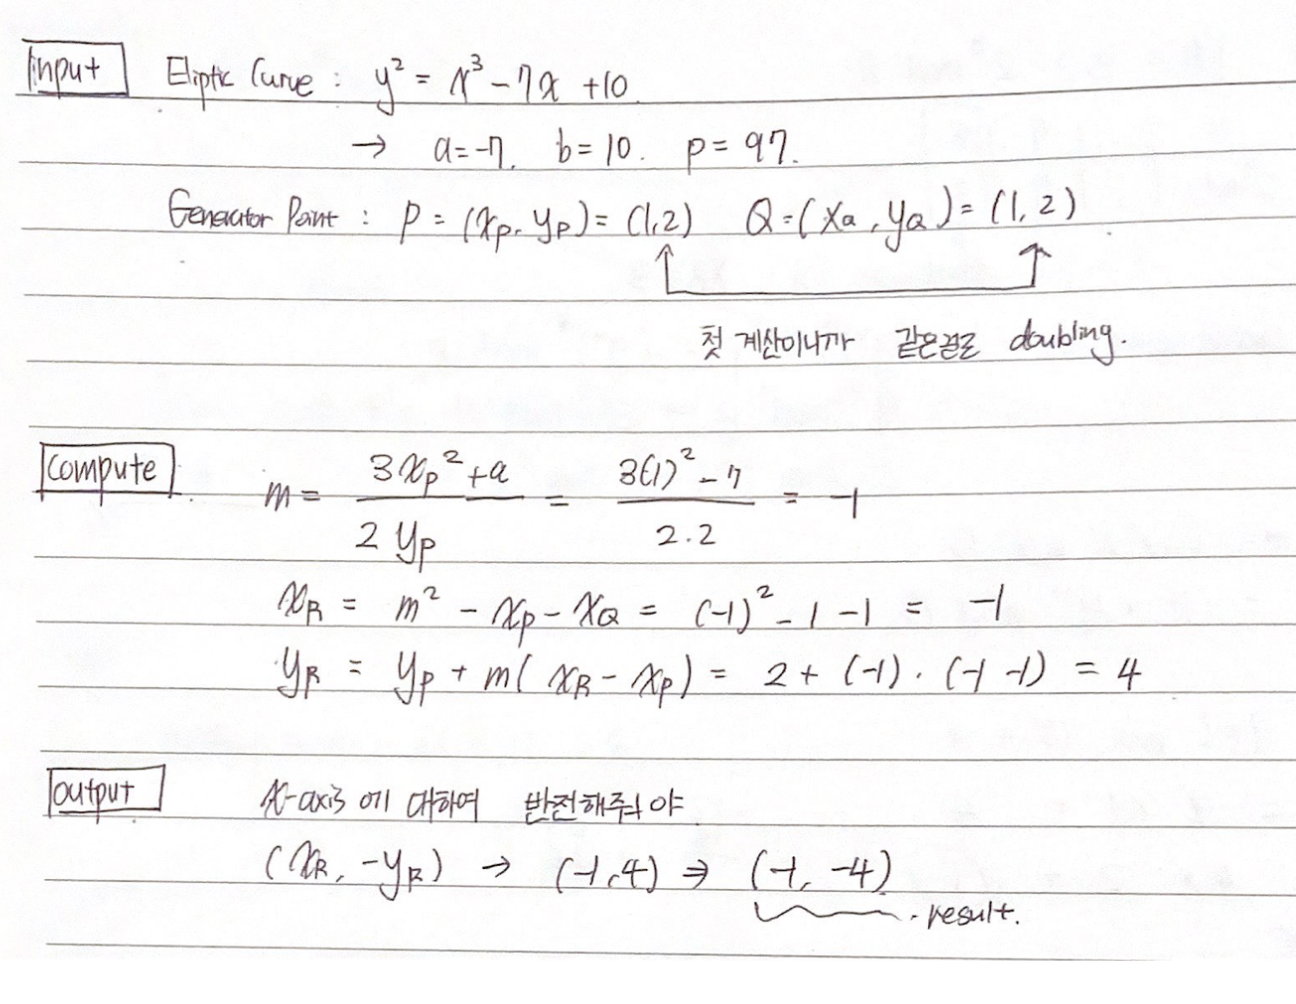 input Eliptic Curve : y² = x³ - 7x + 10
→ a=-7, b=10. p=97.
Generator Point : P = (xp, yp) = (1,2) Q = (xQ, yQ) = (1, 2)
첫 계산이니까 같은걸로 doubling.
compute m = 3xp² + a / 2yp = 3(1)² - 7 / 2·2 = -1
xR = m² - xp - xQ = (-1)² - 1 - 1 = -1
yR = yp + m(xR - xp) = 2 + (-1)·(-1 -1) = 4
output x-axis 에 대하여 반전해줘야
(xR, -yR) → (-1, 4) → (-1, -4)
result.